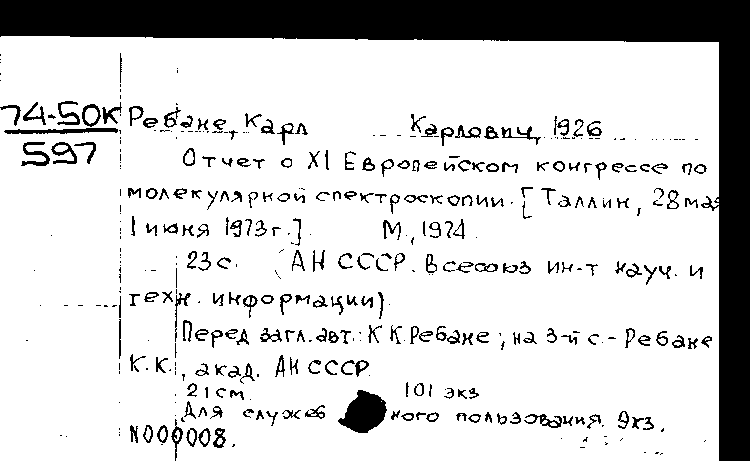 74-50К Ребане, Карл Карлович, 1926
597
Отчет о XI Европейском конгрессе по
молекулярной спектроскопии. [Таллин, 28 мая
1 июня 1973 г.] М., 1974.
23 с. (АН СССР. Всесоюз ин-т науч. и
техн. информации).
Перед загл. авт.: К К. Ребане; на 3-й с. - Ребане
К. К., акад. АН СССР
21 см. 101 экз
Для служеб ного пользования. Экз.
N000008.